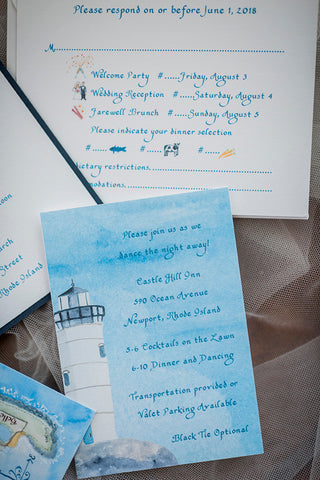 Please respond on or before June 1, 2018
M
Welcome Party #.....Friday, August 3
Wedding Reception #.....Saturday, August 4
Farewell Brunch #.....Sunday, August 5
Please indicate your dinner selection
#..... #..... #.....
dietary restrictions
Street
Rhode Island
Please join us as we
dance the night away!
Castle Hill Inn
590 Ocean Avenue
Newport, Rhode Island
5-6 Cocktails on the Lawn
6-10 Dinner and Dancing
Transportation provided or
Valet Parking Available
Black Tie Optional